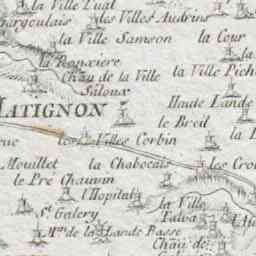 la Ville Pual
les Villes Audrins
la Ville Samson
la Cour
la Ronxiere
Chau de la Ville
la Ville Pich
Saloux
MATIGNON
Haute Lande
le Breil
les Villes Corbin
la Chabocais
les Cro
Mouillet
le Pré Chauvin
l'Hopital
la Ville
St Galery
Talva
Mlin de la Lande Basse
Chau de